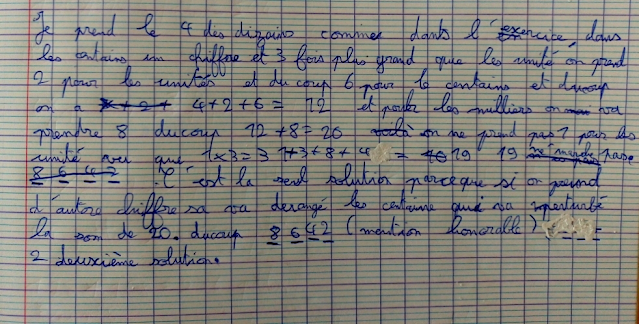 Je prend le 4 des dizains comme dans l'exercice, dans
les centains un chiffre et 3 fois plus grand que les unité on prend
2 pour les unités et du coup 6 pour le centains et ducoup
on a 4+2+6= 12 et pour les milliers on va
prendre 8 ducoup 12+8=20 on ne prend pas 1 pour les
unité vu que 1x3=3 1+3+8+4 = 19 19 pase
8 6 4 2 .C'est la seul solution parceque si on prend
d'autore chiffre sa va derangé les centaine qui va perturbé
la som de 20. ducoup 8 6 4 2 (mention honorable)
2 deuxième solution.